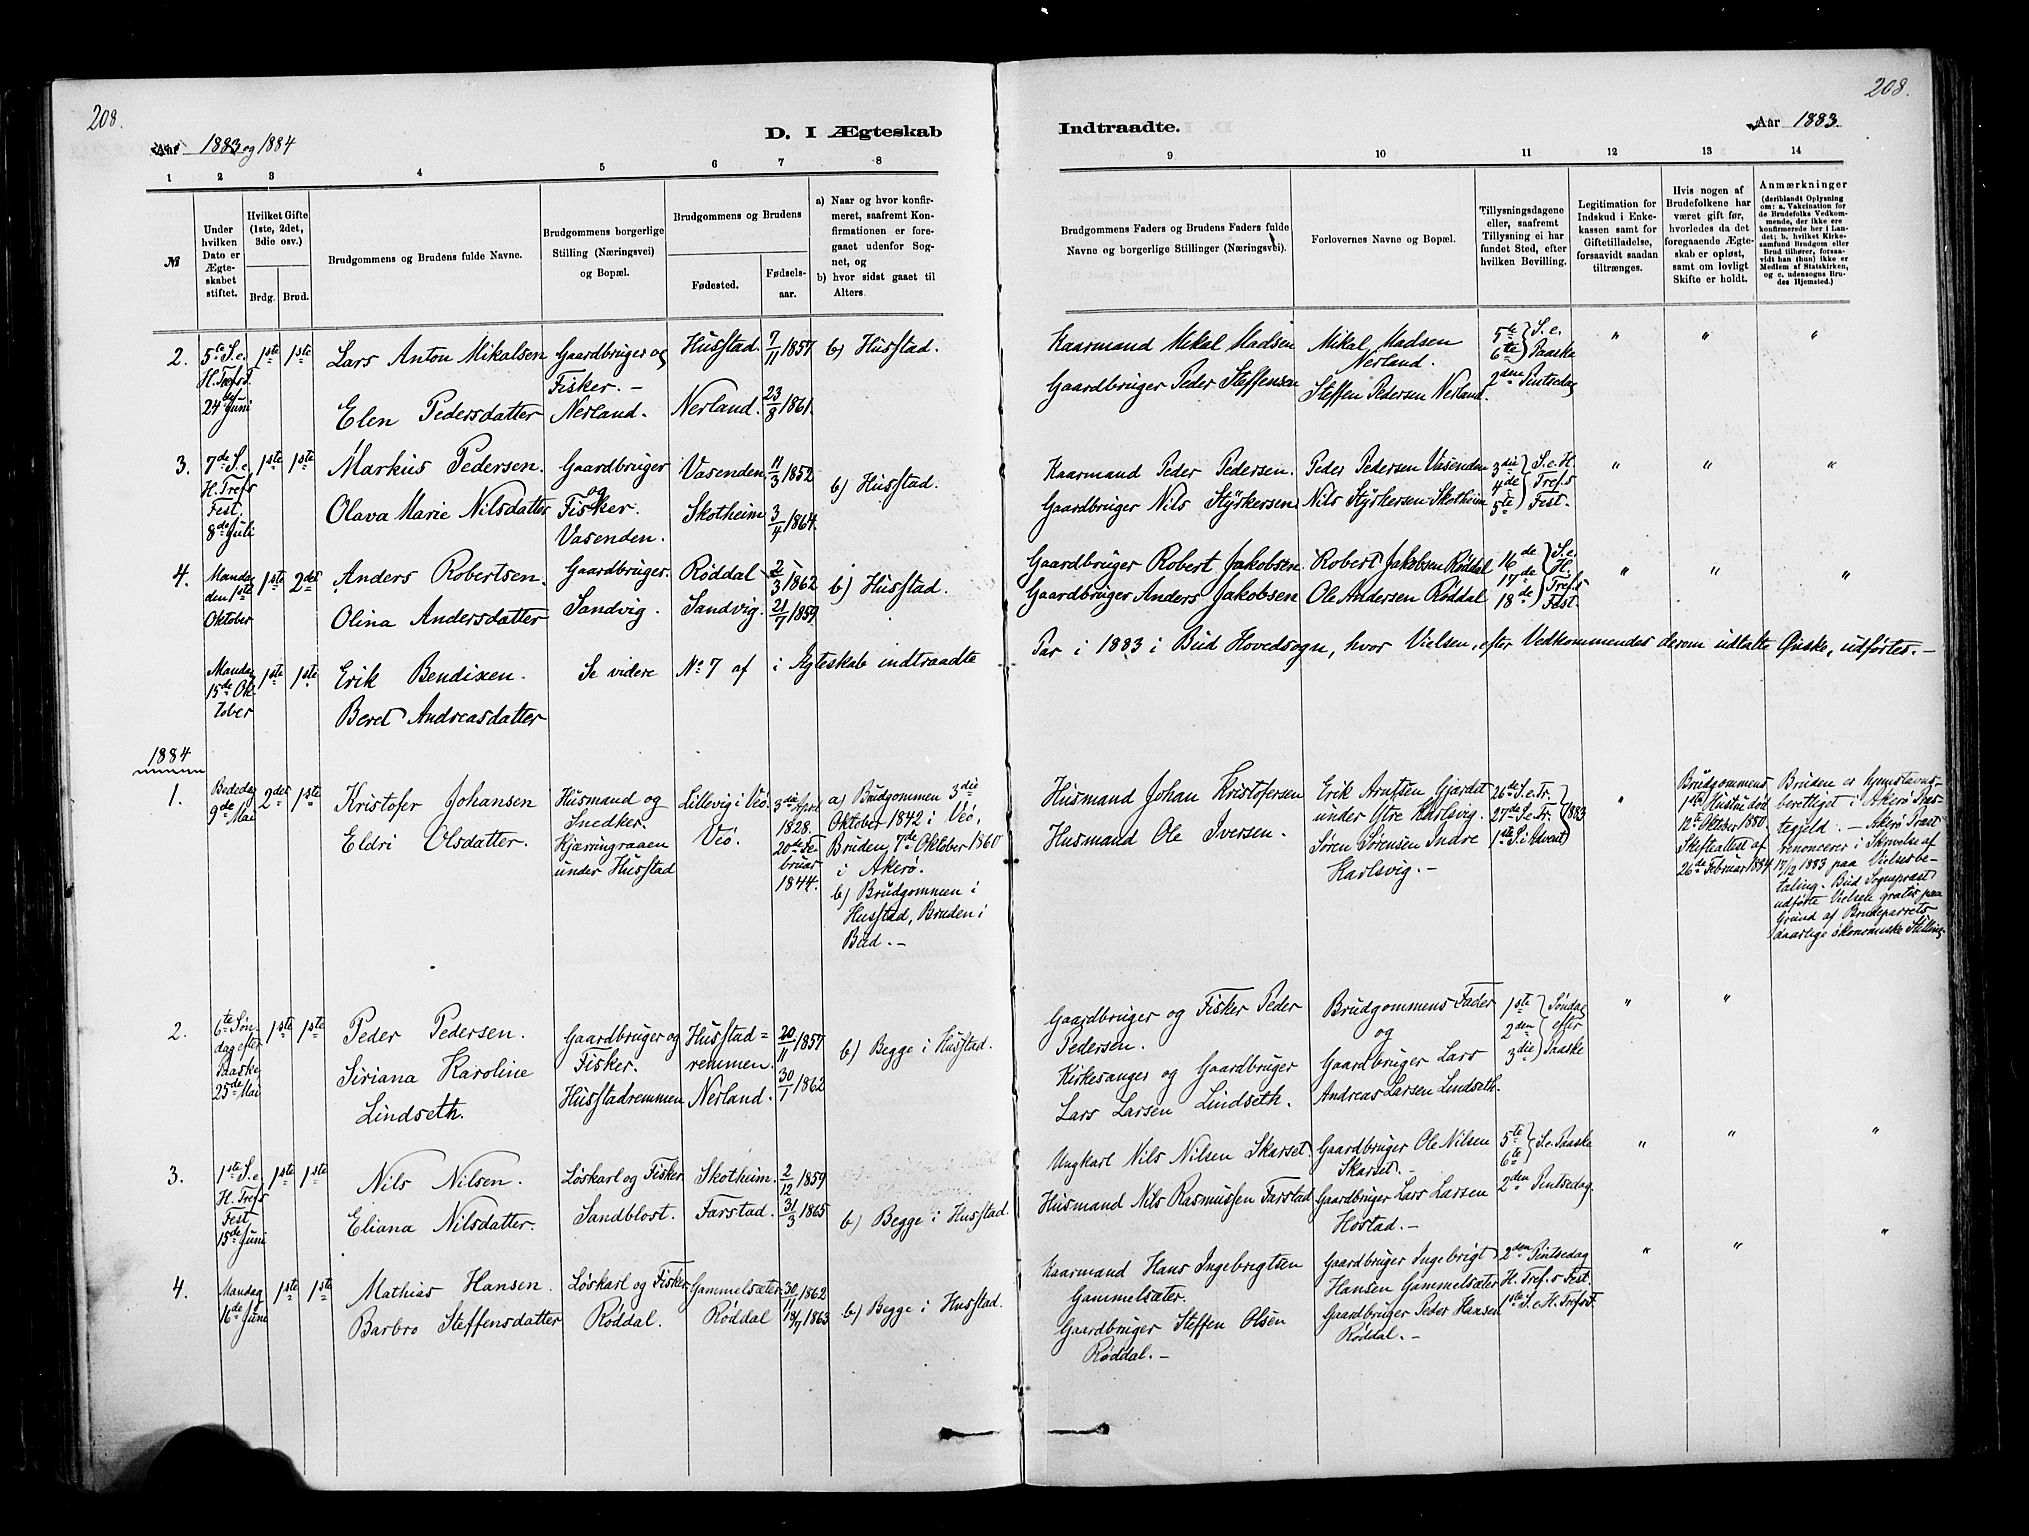 208.
Aar 1883 og 1884
D. I Ægteskab
1 2 3 4 5 6 7 8
№
Under hvilken Dato er Ægteskabet stiftet.
Hvilket Gifte (1ste, 2det, 3die osv.)
Brdg. Brud.
Brudgommens og Brudens fulde Navne.
Brudgommens borgerlige Stilling (Næringsvei) og Bopæl.
Brudgommens og Brudens
Fødested.
Fødselsaar.
a) Naar og hvor konfirmeret, saafremt Konfirmationen er foregaaet udenfor Sognet, og
b) hvor sidst gaaet til Alters.
2. 5te S. e. H. Tref. F. 24de Juni
1ste 1ste
Lars Anton Mikalsen
Elen Pedersdatter
Gaardbruger og
Fisker. –
Nerland.
Husstad. 7/11 1857
Nerland. 23/8 1861.
b) Husstad.
3. 7de S. e. H. Tref.s Fest. 8de Juli
1ste 1ste
Markus Pedersen.
Olava Marie Nilsdatter
Gaardbruger
og
Fisker.
Vasenden.
Vasenden. 11/3 1852
Skotheim. 3/4 1864.
b) Husstad.
4. Mandag den 1ste Oktober
1ste 2det
Anders Robertsen.
Olina Andersdatter
Gaardbruger.
Sandvig.
Røddal 2/3 1862
Sandvig. 21/7 1859
b) Husstad.
Mandag 15de Oktober
1ste 1ste
Erik Bendixen.
Beret Andreasdatter
Se videre No 7 af i Ægteskab indtraadte
1884
1. Bededag 9de Mai
2det 1ste
Kristofer Johansen
Eldri Olsdatter.
Husmand og
Snedker.
Kjøringraaen
under Husstad
Lillevig i Veø.
Veø.
3die April
1828.
20de Februar
1844.
a) Brudgommen 3die
Oktober 1842 i Veø,
Bruden 7de Oktober 1860
i Akerø.
b) Brudgommen i
Husstad, Bruden i
Bud. –
2. 6te Søndag efter Paaske 25de Mai
1ste 1ste
Peder Pedersen.
Siriana Karoline
Lindseth.
Gaardbruger og
Fisker.
Husstadremmen
Husstad=
remmen.
Nerland.
20/11 1857
30/1 1862
b) Begge i Husstad.
3. 1ste S. e. H. Tref.s Fest 15de Juni
1ste 1ste
Nils Nilsen.
Eliana Nilsdatter.
Løskarl og Fisker
Sandblost.
Skotheim. 2/12 1859
Farstad. 31/3 1865
b) Begge i Husstad.
4. Mandag 16de Juni
1ste 1ste
Mathias Hansen.
Barbro Steffensdatter
Løskarl og Fisker
Røddal.
Gammelsæter 30/11 1862
Røddal 19/7 1863
b) Begge i Husstad.
208.
Indtraadte.
Aar 1883.
9 10 11 12 13 14
Brudgommens Faders og Brudens Faders fulde Navne og borgerlige Stillinger (Næringsvei).
Forlovernes Navne og Bopæl.
Tillysningsdagene eller, saafremt Tillysning ei har fundet Sted, efter hvilken Bevilling.
Legitimation for Indskud i Enkekassen samt for Giftetilladelse, forsaavidt saadan tiltrænges.
Hvis nogen af Brudefolkene har været gift før, hvorledes da det foregaaende Ægteskab er opløst, samt om lovligt Skifte er holdt.
Anmærkninger (deriblandt Oplysning om: a. Vakcination for de Brudefolks Vedkommende, der ikke ere konfirmerede her i Landet; b. hvilket Kirkesamfund Brudgom eller Brud tilhører, forsaavidt han (hun) ikke er Medlem af Statskirken, og c. udensogns Brudes Hjemsted.)
Kaarmand Mikal Madsen
Gaardbruger Peder Steffensen
Mikal Madsen
Nerland.
Steffen Pedersen Nerland.
5te S. e.
6te Paaske
2den Pintsedag
" " "
Kaarmand Peder Pedersen.
Gaardbruger Nils Styrkersen.
Peder Pedersen Vasenden
Nils Styrkersen Skotheim
3die S. e. H.
4de Tref.s
5te Fest.
" " "
Gaardbruger Robert Jakobsen.
Gaardbruger Anders Jakobsen
Robert Jakobsen Røddal
Ole Andersen Røddal
16de S. e.
17de H. Tref.s
18de Fest.
" " "
Par i 1883 i Bud Hovedsogn, hvor Vielsen, efter Vedkommendes derom udtalte Ønske, udførtes. –
Husmand Johan Kristofersen
Husmand Ole Iversen.
Erik Gjerdet
under Ytre Karlsvig.
Søren Sørensen Indre
Karlsvig. –
26de S. e. Tr.
27de S. e. Tr.
1ste S. i Advent
1883
"
Brudgommens
1ste Hustru død
12te Oktober 1880.
Skifteattest af
26de Februar 1884
Bruden er
berettiget i Akerø Præstegjeld. – Akerø Præst
renoncerer i Skrivelse af
17/12 1883 paa Vielsesbetaling. Bud Sognepræst
udførte Vielsen gratis paa
Grund af Brudeparrets
daarlige økonomiske Stilling.
Gaardbruger og Fisker Peder
Pedersen.
Kirkesanger og Gaardbruger
Lars Larsen Lindseth.
Brudgommens Fader
og
Gaardbruger Lars
Andreas Larsen Lindseth.
1ste Søndag
2den efter
3die Paaske
" "
Ungkarl Nils Nilsen Skarset.
Husmand Nils Rasmussen Farstad
Gaardbruger Ole Nilsen
Skarset. –
Gaardbruger Lars Larsen
Hostad. –
5te S. e. Paaske
6te
2den Pintsedag.
" " "
Kaarmand Hans Ingebrigtsen
Gammelsæter.
Gaardbruger Steffen Olsen
Røddal. –
Gaardbruger Ingebrigt
Hansen Gammelsæter
Gaardbruger Peder Hansen
Røddal. –
2den Pintsedag
H. Tref.s Fest.
1ste S. e. H. Tref.s F.
" " "